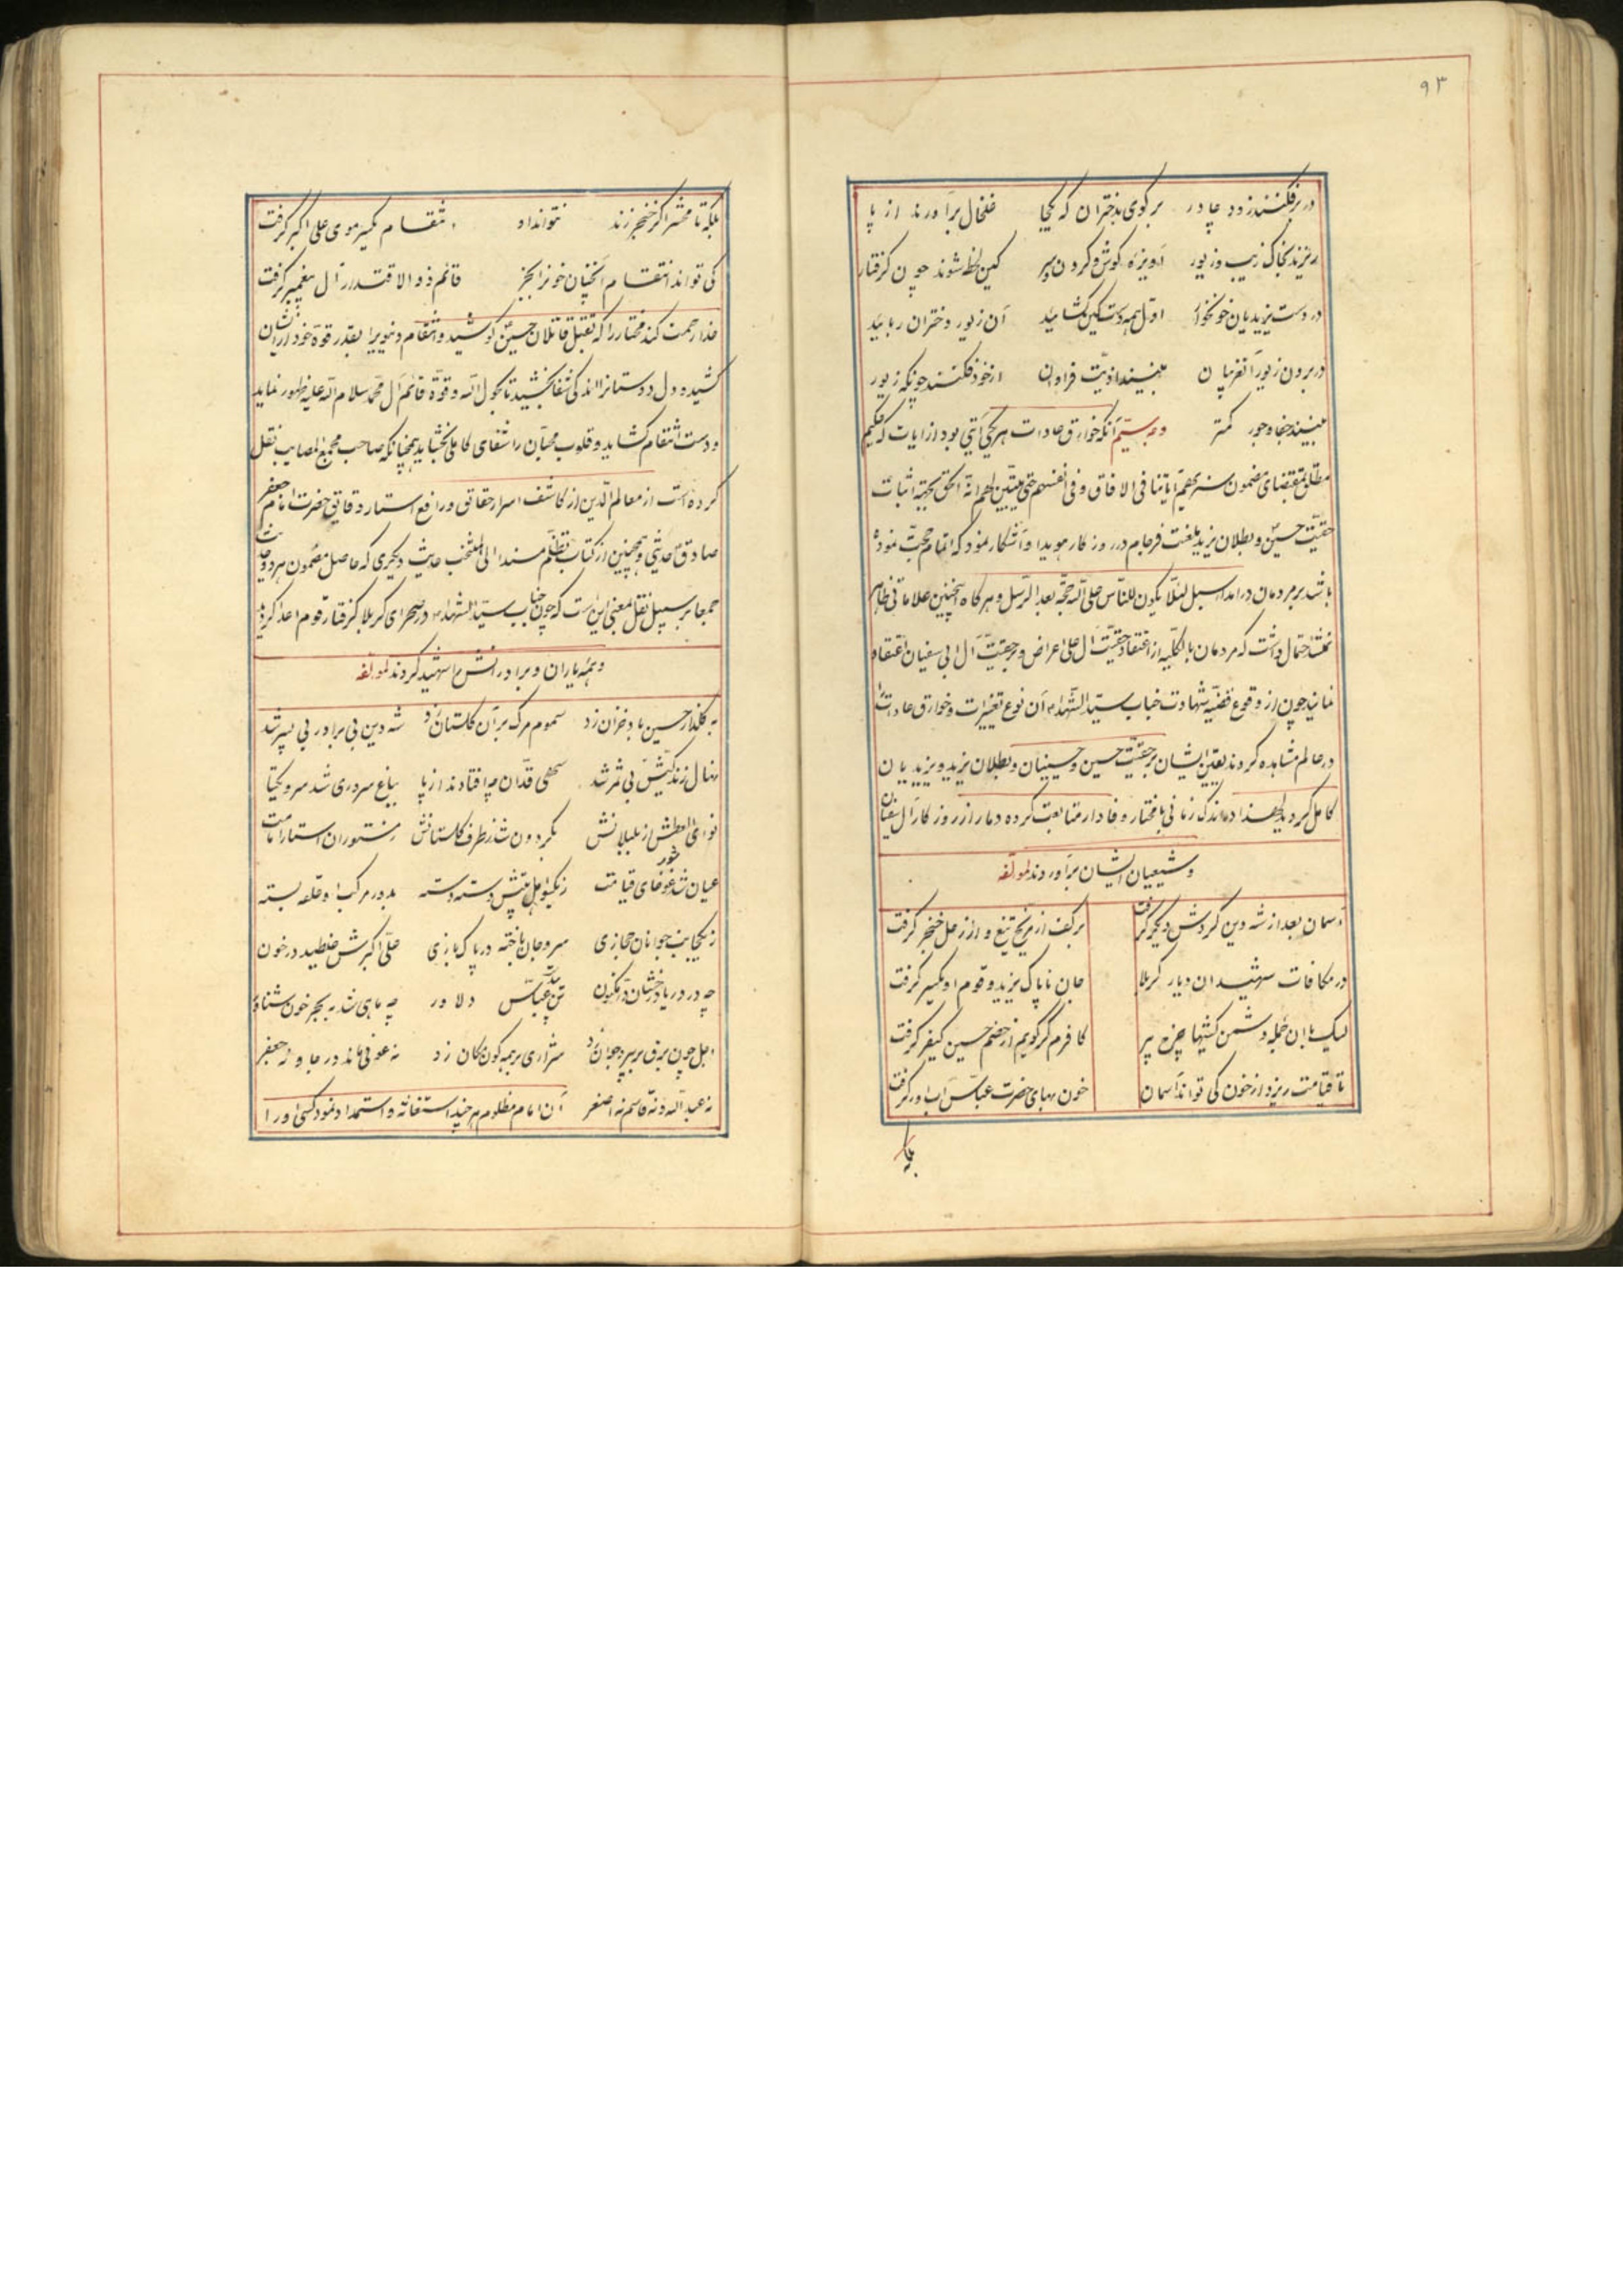 ۹۳
در برفکنند زود چادر برکوی بدختران که یکجا خلخال برآورند از پا
ریزند بخاک زیب و زیور آویزه کوش و کردن و بر کین لحظه شوند چون کرفتار
در دست یزیدیان خونخوار اول همه دست کین کشایند آن زیور دختران ربایند
در بردن زیور آنفرمان بینند اذیت فراوان از خود فکنند چونکه زیور
بینند جفا و جور کمتر وجه سیم آنکه خوارق عادات هر یکی آیتی بود از آیات که حکیم
مطلق بمقتضای مضمون سنریهم آیاتنا فی الافاق و فی انفسهم حتی یتبین لهم انه الحق بجهة اثبات
حقیت حسین و بطلان یزید بلعنت فرجام در روزکار هویدا و آشکار نمود که اتمام حجت نموده
باشد بر مردمان درآمد سبل لئلا یکون للناس علی الله حجة بعد الرسل و هرکاه اینچنین علاماتی ظاهر
نمیشد احتمال داشت که مردمان بالکلیه از اعتقاد حقیت آل علی اعراض و بر حقیت آل ابی سفیان اعتقاد
نمایند چون از وقوع قضیه شهادت جناب سید الشهداء آن نوع تغییرات و خوارق عادات را
در عالم مشاهده کردند یقین ایشان بر حقیت حسین و حسینیان و بطلان یزید و یزیدیان
کامل کردید لهذا در اندک زمانی با مختار وفادار متابعت کرده دمار از روزکار آل سفیان
و شیعیان ایشان برآوردند لمولفه
آسمان بعد از شه دین کردش دیگر کرفت بر کف از مریخ تیغ و از زحل خنجر کرفت
در مکافات شهیدان دیار کربلا جان ناپاک یزید و قوم او یکسر کرفت
لیک با این جمله دشمن کشتنها چرخ پیر کافرم کر کویم از خصم حسین کیفر کرفت
تا قیامت ریزد از خون کی تواند آسمان خون بهای حضرت عباس آب آور کرفت
بلکه
بلکه تا محشر اگر خنجر زند نتواند او انتقام یکسر موی علی اکبر کرفت
کی تواند انتقام آنچنان خونرا بجز قائم ذو الاقتدار آل پیغمبر کرفت
خدا رحمت کند مختار را که بقتل قاتلان حسین کوشید و انتقام دنیویرا بقدر قوه خود از ایشان
کشید و دل دوستانرا اندکی شفا بخشید تا بحول الله و قوة قائم آل محمد سلام الله علیه ظهور نماید
و دست انتقام کشاید و قلوب محبان را شفای کاملی بخشاید همچنانکه صاحب مجمع المصایب نقل
کرده است از معالم الدین از کاشف اسرار حقائق و رافع استار دقایق حضرت امام جعفر
صادق حدیثی و همچنین از کتاب تظلم مسندا الی المنتخب حدیث دیگری که حاصل مضمون هر دو حدیث
جمعا بر سبیل نقل بمعنی این است که چون جناب سید الشهداء در صحرای کربلا کرفتار قوم اعدا کردید
و همه یاران و برادرانش را شهید کردند لمولفه
به کلزار حسین باد خزان زد سموم مرک بر آن کلستان زد شه دین بی برادر بی پسر شد
نهال زندکیش بی ثمر شد سهی قدان چه افتادند از پا بباغ سروری شد سرو یکتا
نوای العطش از بلبلانش بکردون شد ز طرف کلستانش
عیان شد شور غوغای قیامت ز یکسو اهل بیتش دسته دسته بدور مرکب او حلقه بسته
ز یکجانب جوانان حجازی سر و جان باخته در پاکبازی علی اکبرش غلطید در خون
چه در دریا درخشان در مکنون تن عباس دلاور چه ماهی شد به بحر خون شناور
اجل چون برق بر پیر و جوان زد شراری بر همه کون و مکان زد نه عونی ماند در جا و نه جعفر
نه عبدالله و نه قاسم نه اصغر آن امام مظلوم هر چند استغاثه و استمداد نمود کسی او را